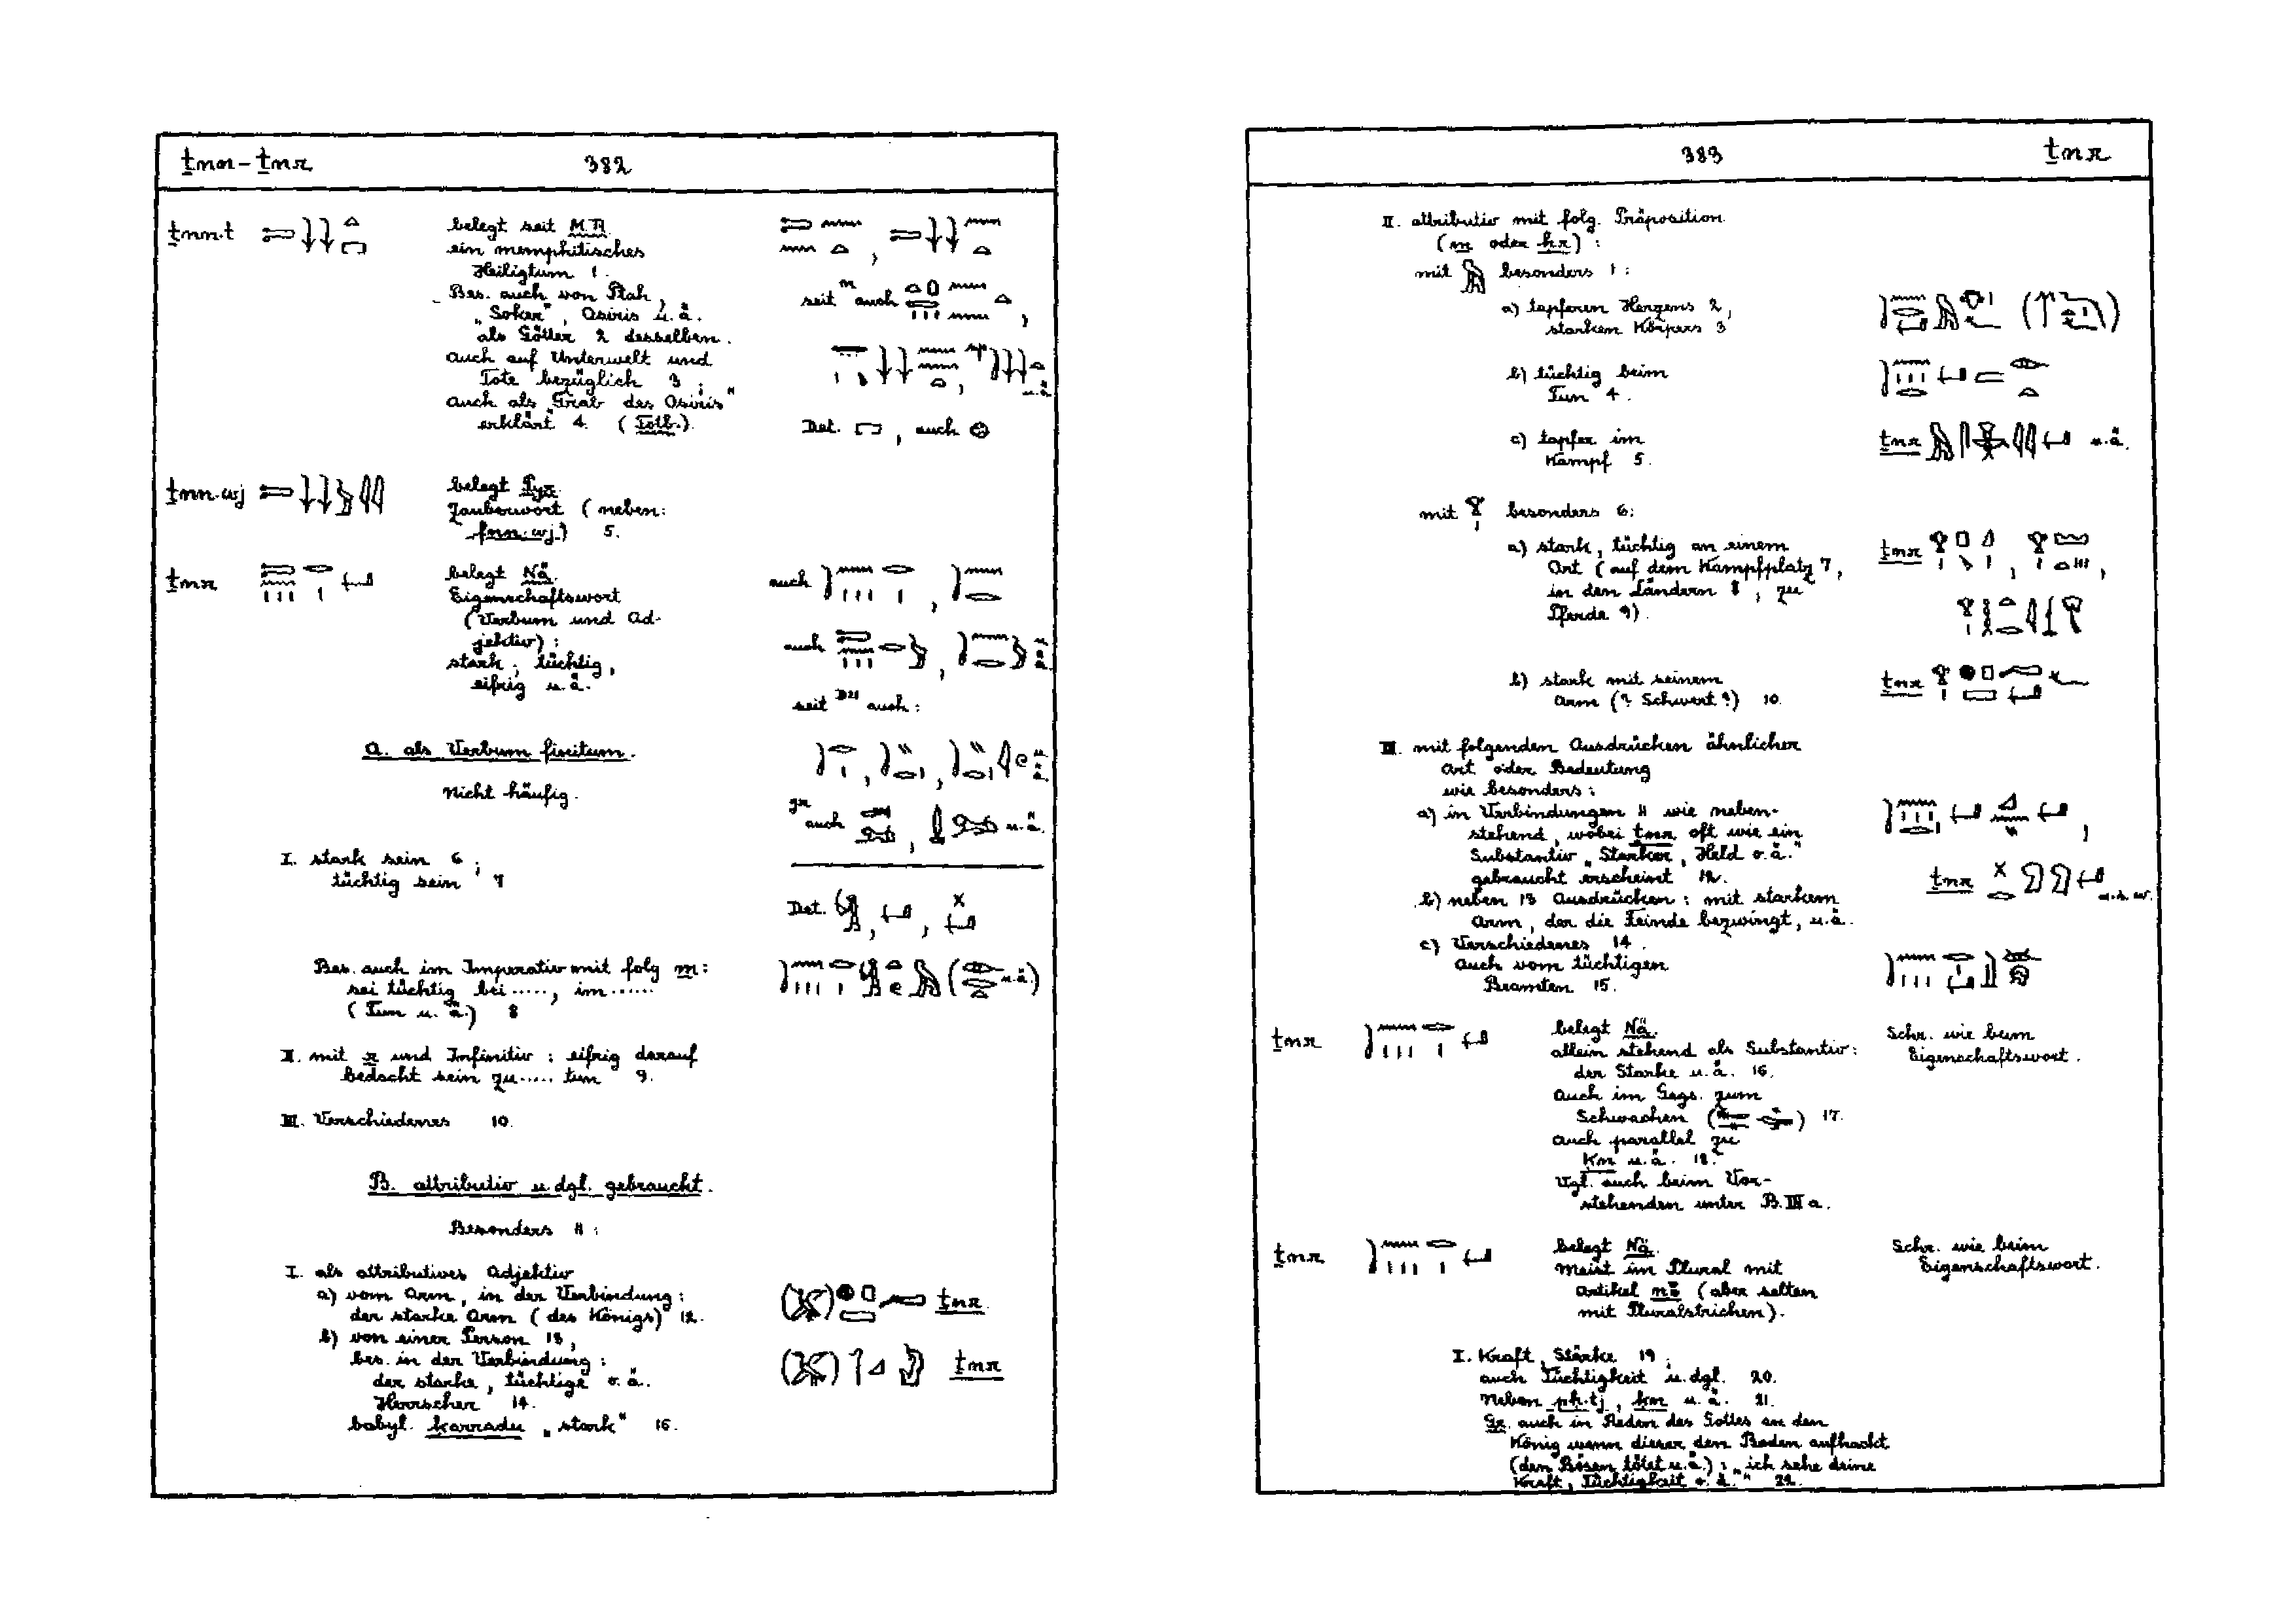 ṯnn - ṯnr 382
ṯnn.t
belegt seit M.R.
ein memphitisches
Heiligtum 1.
Bes. auch von Ptah,
„Sokar“, Osiris u.ä.
als Götter 2 desselben.
auch auf Unterwelt und
Tote bezüglich 3;
auch als „Grab des Osiris“
erklärt 4. (Totb.).
seit auch
u.ä.
Det. , auch
ṯnn.wj
belegt Pyr.
Zauberwort (neben:
fnn.wj) 5.
ṯnr
belegt Nä.
Eigenschaftswort
(Verbum und Ad-
jektiv):
stark, tüchtig,
eifrig u.ä.
auch
auch u.ä.
seit D21 auch:
u.ä.
gr auch u.ä.
Det.
A. als Verbum finitum.
Nicht häufig.
I. stark sein 6;
tüchtig sein 7
Bes. auch im Imperativ mit folg m:
sei tüchtig bei ....., im ......
(Tun u.ä.) 8
u.ä.)
II. mit r und Infinitiv: eifrig darauf
bedacht sein zu ..... tun 9.
III. Verschiedenes 10.
B. attributiv u dgl. gebraucht.
Besonders 11:
I. als attributives Adjektiv
a) vom Arm, in der Verbindung:
der starke Arm (des Königs) 12.
ṯnr
b) von einer Person 13,
bes. in der Verbindung:
der starke, tüchtige o.ä.
Herrscher 14.
ṯnr
babyl. karradu „stark“ 15.
383 ṯnr
II. attributiv mit folg. Präposition
(m oder ḥr):
mit besonders 1:
a) tapferen Herzens 2,
starken Körpers 3
b) tüchtig beim
Tun 4.
c) tapfer im
Kampf 5.
ṯnr u.ä.
mit besonders 6:
a) stark, tüchtig an einem
Ort (auf dem Kampfplatz 7,
in den Ländern 8, zu
Pferde 9).
ṯnr
b) stark mit seinem
Arm (? Schwert?) 10.
ṯnr
III. mit folgenden Ausdrücken ähnlicher
Art oder Bedeutung
wie besonders:
a) in Verbindungen 11 wie neben-
stehend, wobei ṯnr oft wie ein
Substantiv „Starker, Held o.ä.“
gebraucht erscheint 12.
ṯnr u.s.w.
b) neben 13 Ausdrücken: mit starkem
Arm, der die Feinde bezwingt, u.ä.
c) Verschiedenes 14.
Auch vom tüchtigen
Beamten 15.
ṯnr
belegt Nä.
allein stehend als Substantiv:
der Starke u.ä. 16.
Auch im Gegs. zum
Schwachen ( ) 17.
auch parallel zu
ḳn u.ä. 18.
Vgl. auch beim Vor-
stehenden unter B. III a.
Schr. wie beim
Eigenschaftswort.
ṯnr
belegt Nä.
Meist im Plural mit
Artikel nꜣ (aber selten
mit Pluralstrichen).
Schr. wie beim
Eigenschaftswort.
I. Kraft, Stärke 19;
auch Tüchtigkeit u.dgl. 20.
Neben pḥ.tj, ḳn u.ä. 21.
Gr. auch in Reden des Gottes an den
König wenn dieser den Boden aufhackt
(den Bösen tötet u.ä.): „ich sehe deine
Kraft, Tüchtigkeit o.ä.“ 22.